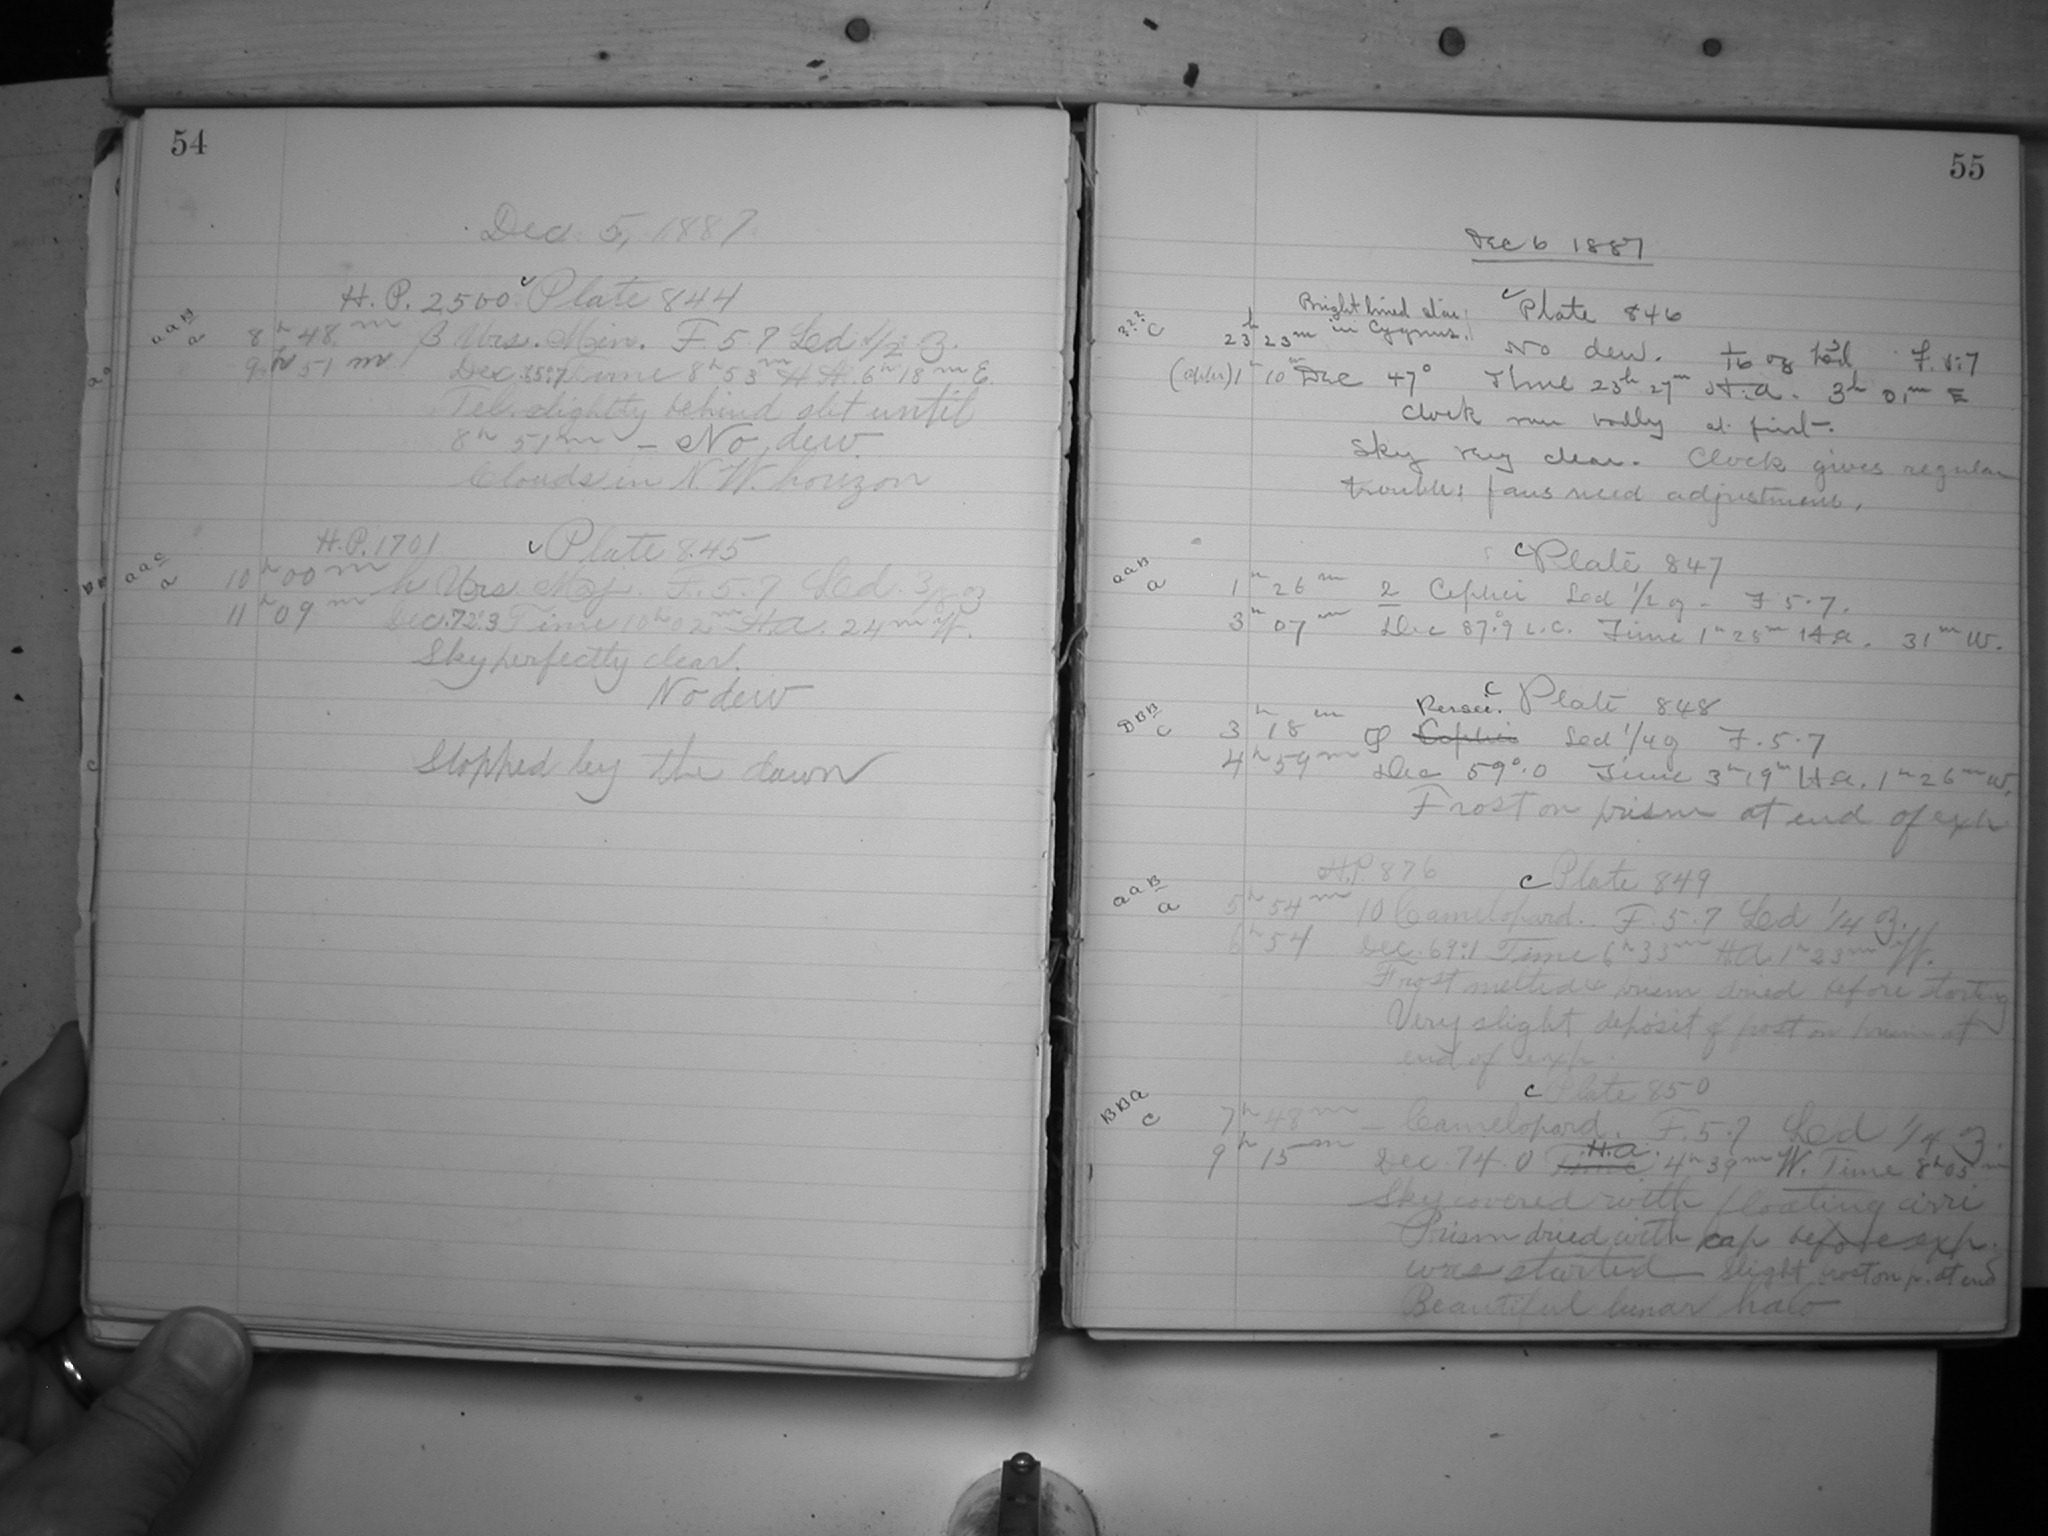 54
Dec. 5, 1887
H. P. 2500 c Plate 844
a a B a 8h 48m β Urs. Min. F. 5.7 Led 1/2 g.
9h 51m Dec. Time 8h 53m H.A. 6h 18m E.
Tel. slightly behind slit until
8h 51m - No dew.
Clouds in N.W. horizon
H.P. 1701 c Plate 845
a a c a 10h 00m h Urs. Maj. F. 5.7 Led. 3/8 g
11h 09m Dec. 72.3 Time 10h 02m H.a. 24m W.
Sky perfectly clear.
No dew
Stopped by the dawn
55
Dec 6 1887
Bright lined star c Plate 846
? ? ? C 23h 23m in Cygnus. No dew. F. 5.7
1h 10m Dec 47° Time 23h 27m H.a. 3h 01m E
Clock ran badly at first.
Sky very clear. Clock gives regular
trouble: fans need adjustment.
c Plate 847
a a B a 1h 26m 2 Cephei Led 1/2 g - F 5.7.
3h 07m Dec 87°.9 L.C. Time 1h 28m H.a. 31m W.
Persei. c Plate 848
D B B C 3h 18m Cephei Led 1/4 g F. 5.7
4h 59m Dec 59°.0 Time 3h 19m H.a. 1h 26m W.
Frost on prism at end of exp
H.P. 876 c Plate 849
a a B a 5h 54m 10 Camelopard. F. 5.7 Led 1/4 g.
6h 54 Dec. 69.1 Time 6h 33m H.a. 1h 23m W.
Frost melted & prism dried before starting
Very slight deposit of frost on prism at
end of exp.
c Plate 850
B B a C 7h 48m - Camelopard. F. 5.7 Led 1/4 g.
9h 15m Dec. 74.0 Time H.a. 4h 39m W. Time 8h 05m
Sky covered with floating cirri
Prism dried with cap before exp.
was started. Slight frost on p. at end
Beautiful lunar halo